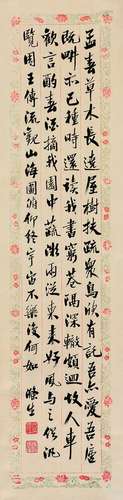 孟夏草木長遶屋樹扶疏眾鳥欣有託吾亦愛吾廬
既耕亦已種時還讀我書窮巷隔深轍頗迴故人車
歡言酌春酒摘我園中蔬微雨從東來好風與之俱汎
覽周王傳流觀山海圖俯仰終宇宙不樂復何如 滌生